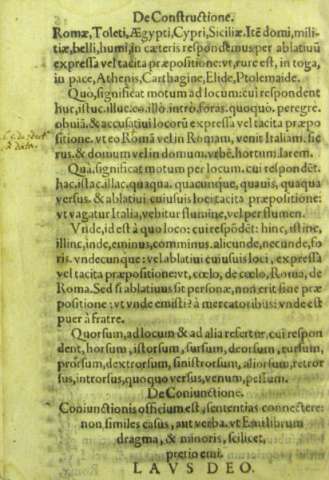 De Constructione.
Romæ, Toleti, Ægypti, Cypri, Siciliæ. Itē domi, mili-
tiæ, belli, humi, in cæteris respondemus per ablatiuū
expressa vel tacita præpositione: vt, rure est, in toga,
in pace, Athenis, Carthagine, Elide, Ptolemaide.
Quo, significat motum ad locum: cui respondent
huc, istuc, illuc, eo, illò, intrò, foras, quoquò, peregre,
obuiā, & accusatiui locorū expressa vel tacita præpo
sitione. vt eo Romā vel in Romam, venit Italiam. sic
rus, & domum vel in domum, vrbē, hortum, larem.
Qua, significat motum per locum. cui respondēt.
hac, istac, illac, quaqua, quacunque, quauis, quaqua
versus, & ablatiui cuiusuis loci tacita præpositione:
vt vagatur Italia, vehitur flumine, vel per flumen.
Vnde, id est à quo loco: cui respōdēt: hinc, istinc,
illinc, inde, eminus, comminus, alicunde, necunde, fo
ris, vndecunque: vel ablatiui cuiusuis loci, expressa
vel tacita præpositione: vt, cœlo, de cœlo, Roma, de
Roma. Sed si ablatiuus sit personæ, non erit sine præ
positione: vt vnde emisti? à mercatoribus: vnde est
puer à fratre.
Quorsum, ad locum & ad alia refertur, cui respon
dent, horsum, istorsum, sursum, deorsum, rursum,
prorsum, dextrorsum, sinistrorsum, aliorsum, retror
sus, introrsus, quoquo versus, venum, pessum.
De Coniunctione.
Coniunctionis officium est, sententias connectere:
non similes casus, aut verba. vt Emi librum
dragma, & minoris, scilicet,
pretio emi.
LAVS DEO.